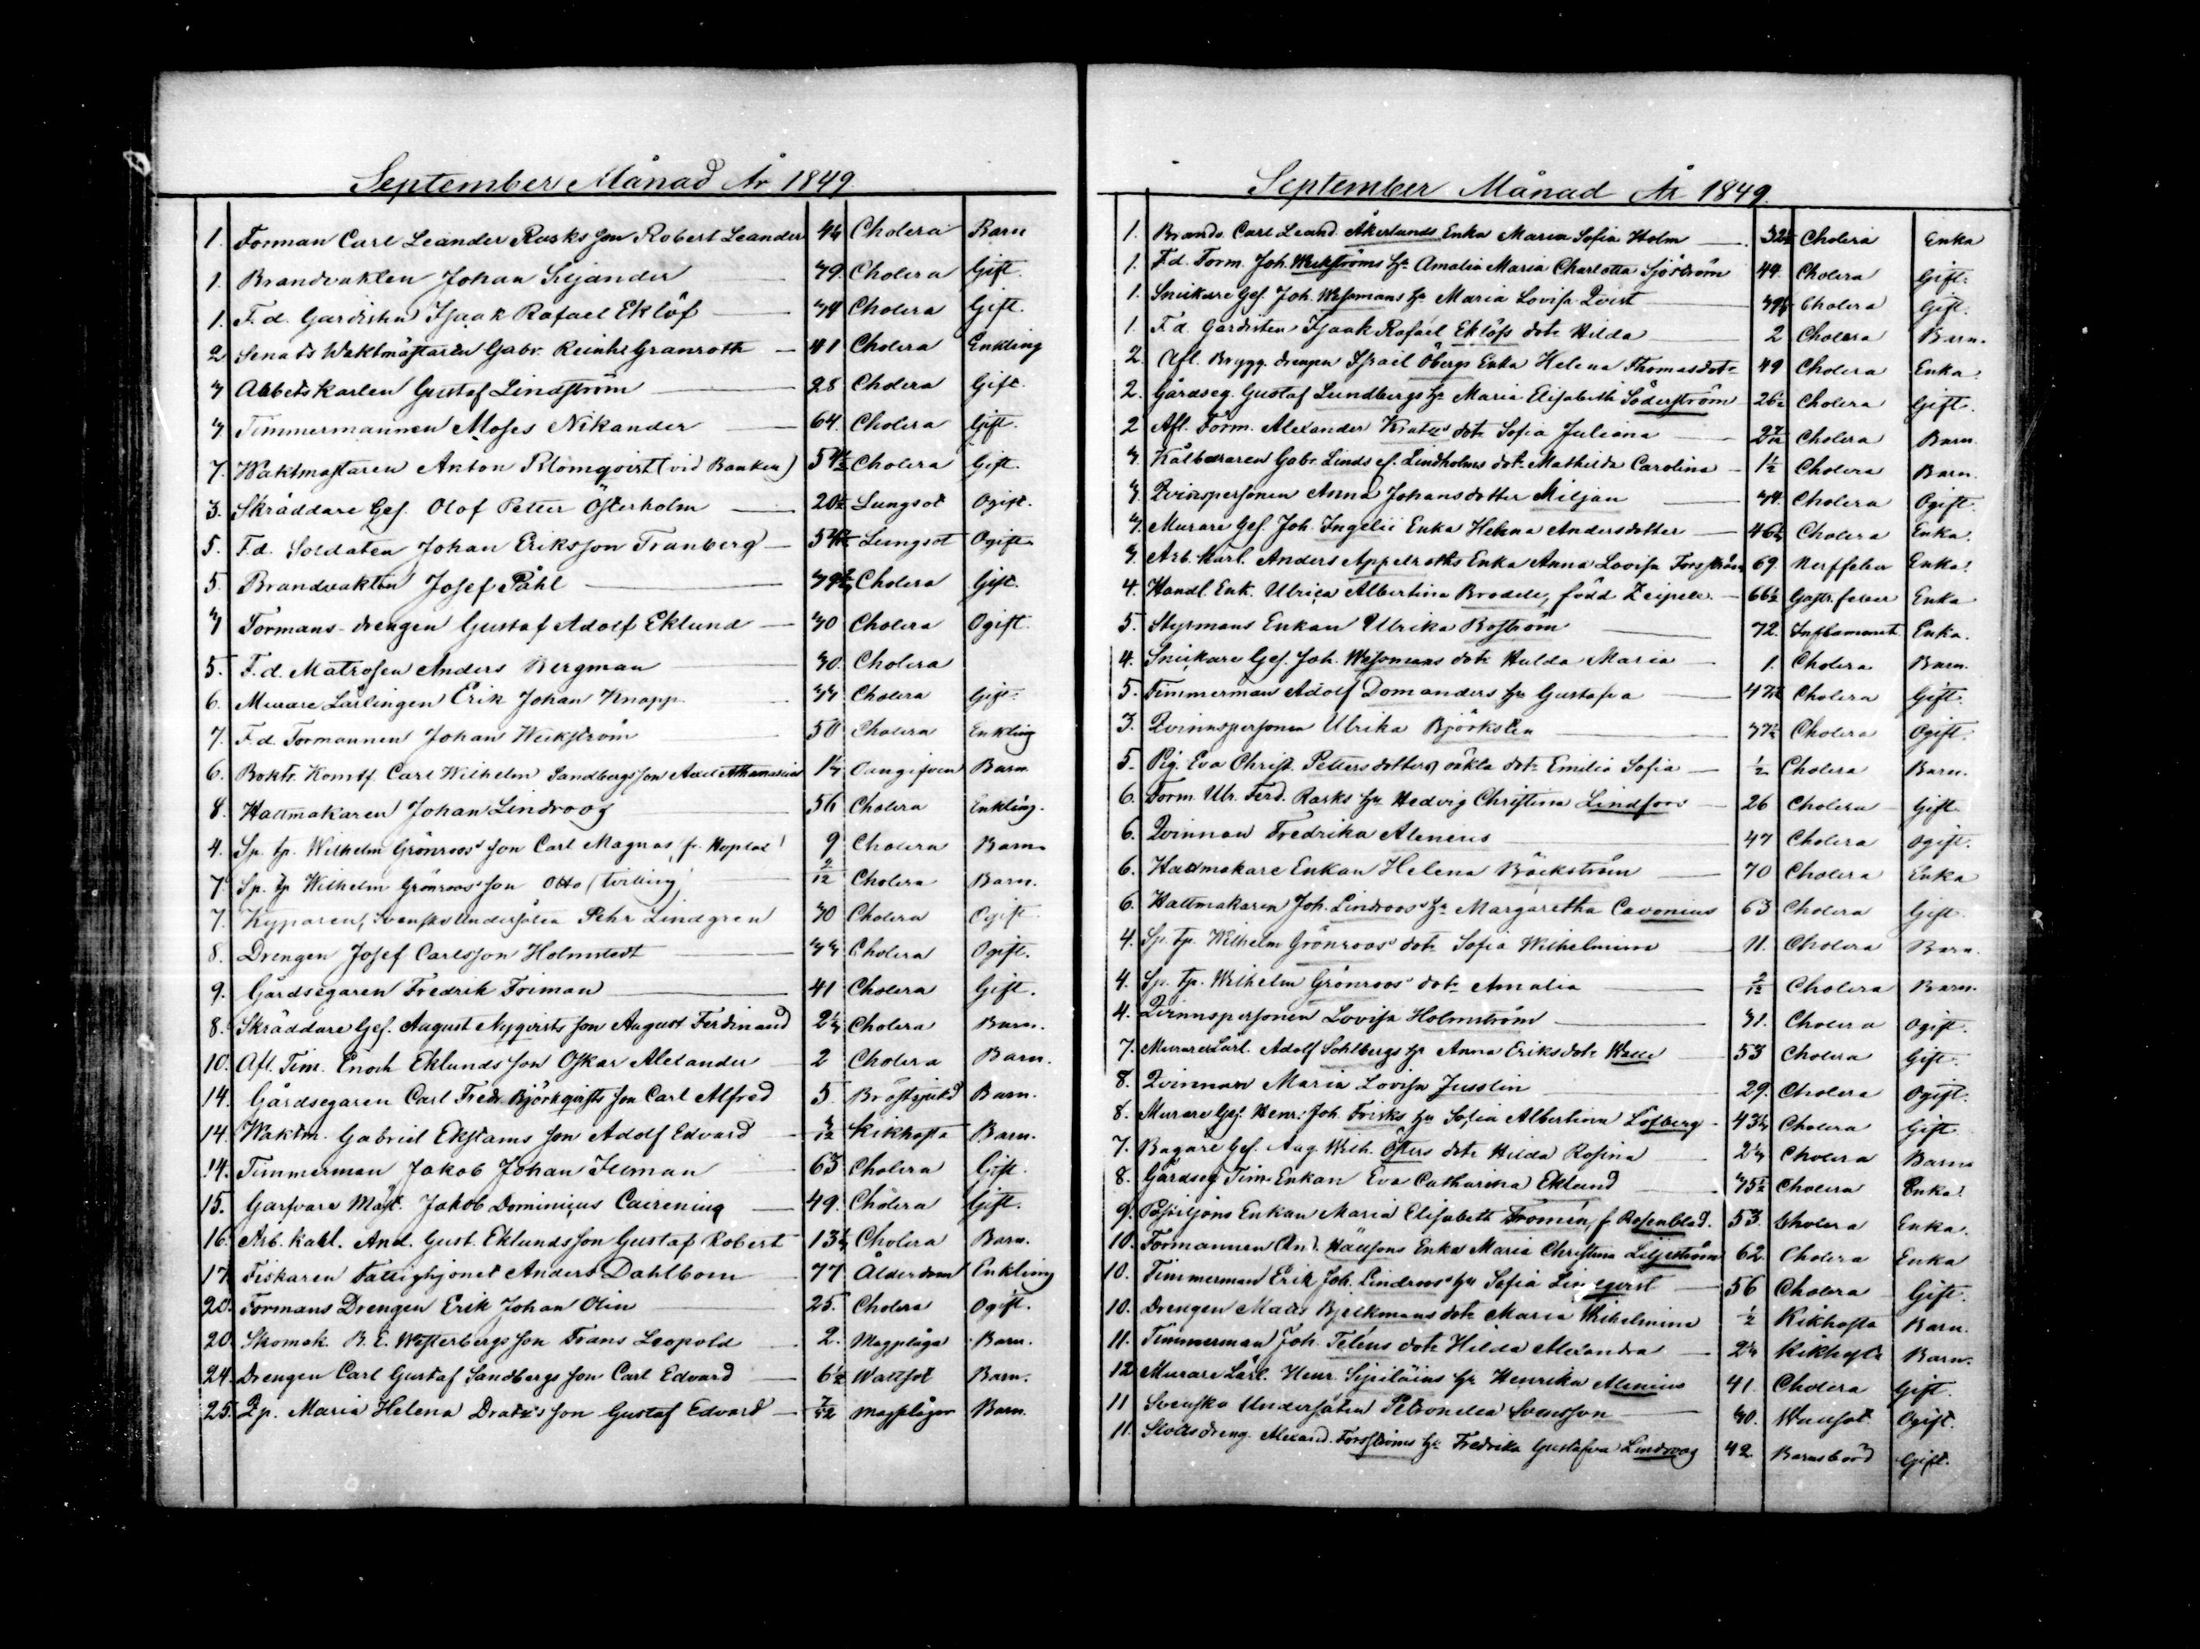 September Månad År 1849
1. Forman Carl Leander Rasks son Robert Leander Cholera Barn
1. Brandvakten Johan Siljander 39 Cholera Gift.
1. F. d. Gardisten Isaak Rafael Eklöf 34 Cholera Gift.
2 Senats Waktmästaren Gabr. Reinh. Granroth 41 Cholera Enkling
3 Arbetskarlen Gustaf Lindström 28 Cholera Gift.
3 Timmermannen Moses Nikander 64. Cholera Gift.
7. Waktmästaren Anton Blomqvist (vid Banken) Cholera Gift.
3. Skräddare Ges. Olof Petter Österholm 20½ Lungsot Ogift.
5. F.d. Soldaten Johan Eriksson Tranberg Lungsot Ogift
5 Brandvakten Josef Påhl Cholera Gift.
3 Formans-drengen Gustaf Adolf Eklund 30 Cholera Ogift.
5. F. d. Matrosen Anders Bergman 30. Cholera
6. Murare Lärlingen Erik Johan Knapp 33 Cholera Gift.
7. F. d. Formannen Johan Weikström 50 Cholera Enkling
6. Boktr. Konstf. Carl Wilhelm Sandbergs son Axel Athanasius Oangifven Barn
8. Hattmakaren Johan Lindroos 56 Cholera Enkling.
4. Sp. tp. Wilhelm Grönroos' son Carl Magnus, 9 Cholera Barn
7. Sp. tp Wilhelm Grönroos' son Otto (tvilling) 2/12 Cholera Barn.
7. Kyparen, Svenske Undersåten Pehr Lindgren 30 Cholera Ogift
8. Drengen Josef Carlsson Holmstedt 33 Cholera Ogift.
9. Gårdsegaren Fredrik Foiman 41 Cholera Gift.
8. Skräddare Ges. August Nyqvists son August Ferdinand Cholera Barn.
10. Afl. Tim. Enoch Eklunds son Oskar Alexander 2 Cholera Barn.
14. Gårdsegaren Carl Fredr. Björkqvists son Carl Alfred 5. Bröstsjukd Barn.
14. Waktm. Gabriel Ekstams son Adolf Edvard 3/12 Kikhosta Barn.
14. Timmerman Jakob Johan Illman 63 Cholera Gift.
15. Garfvare Mäst. Jakob Dominicus Cairenius 49. Cholera Gift.
16. Arb. karl. And. Gust. Eklunds son Gustaf Robert Cholera Barn.
17. Fiskaren Fattighjonet Anders Dahlbom 77 Ålderdom Enkling
20. Formans Drengen Erik Johan Olin 25. Cholera Ogift.
20. Skomak. B. E. Westerbergs son Frans Leopold 2. Magplåga Barn.
24. Drengen Carl Gustaf Sandbergs son Carl Edvard 6½ Wattsot Barn.
25. Qp. Maria Helena son Gustaf Edvard Magplågor Barn.
September Månad År 1849.
1. Brandv. Carl Leand. Åkerlunds Enka Maria Sofia Holm Cholera Enka
1. F. d. Form. Joh. Weikströms h:u Amalia Maria Charlotta Sjöström 44. Cholera Gift.
1. Snickare Ges. Joh. Wessmans h:u Maria Lovisa Qvist Cholera Gift.
1. F. d. Gardisten Isaak Rafael Eklöfs dotr Hilda 2 Cholera Barn.
2. Afl. Brygg. drengen Israel Öbergs Enka Helena Thomasdotr 49 Cholera Enka
2. Gårdseg. Gustaf Lundbergs h:u Maria Elisabeth Söderström 26½ Cholera Gift.
2 Afl. Form. Alexander dotr Sofia Juliana Cholera Barn
3. Kålbäraren Gabr. Linds el. Lindholms dotr Mathilda Carolina 1½ Cholera Barn.
3. Qvinspersonen Anna Johansdotter Miljan 34. Cholera Ogift.
3. Murare Ges. Joh. Ingelii Enka Helena Andersdotter Cholera Enka.
3. Arb. Karl. Anders Appelroths Enka Anna Lovisa Forsström 69. Nerffeber Enka.
4. Handl. Enk. Ulrica Albertina Brodele, född Zeipele 66½ Gastr. feber Enka
5. Styrmans Enkan Ulrika Boström 72. Inflammat. Enka.
4. Snickare Ges. Joh. Wessmans dotr Hulda Maria 1. Cholera Barn.
5. Timmerman Adolf Domanders h:u Gustafva Cholera Gift.
3. Qvinnspersonen Ulrika Björksten 37½ Cholera Ogift.
5. Pig. Eva Christ. Pettersdotters oäkta dotr Emilia Sofia ½ Cholera Barn.
6. Form. Ulr. Ferd. Rasks h:u Hedvig Christina Lindfors 26 Cholera Gift.
6. Qvinnan Fredrika Alenius 47 Cholera Ogift.
6. Hattmakare Enkan Helena Bäckström 70 Cholera Enka
6. Hattmakaren Joh. Lindroos' h:u Margaretha Cavonius 63 Cholera Gift.
4. Sp. tp. Wilhelm Grönroos' dotr Sofia Wilhelmina 11. Cholera Barn.
4. Sp. tp. Wilhelm Grönroos' dotr Amalia 2/12 Cholera Barn.
4. Qvinnspersonen Lovisa Holmström 31. Cholera Ogift.
7. Murare Lärl. Adolf Sohlbergs h:u Anna Eriksdotr 53 Cholera Gift.
8. Qvinnan Maria Lovisa Jusslin 29. Cholera Ogift.
8. Murare Ges. Henr. Joh. Frisks h:u Sofia Albertina Löfberg Cholera Gift
7. Bagare Ges. Aug. Wilh. Östers dotr Hilda Rosina Cholera Barn
8. Gårdseg. Tim. Enkan Eva Catharina Eklund 75½ Cholera Enka.
9. Postiljons Enkan Maria Elisabeth Fromén, f. Rosenblad. 53. Cholera Enka.
10. Formannen And. Enka Maria Christina Liljeström 62. Cholera Enka
10. Timmerman Erik Joh. Lindroos' h:u Sofia Lindqvist 56 Cholera Gift.
10. Drengen Matts Bjelkmans dotr Maria Wilhelmina ½ Kikhosta Barn.
11. Timmerman Joh. Teléns dotr Hilda Alexandra Kikhosta Barn.
12 Murare Lärl. Henr. h:u Henrika Alenius 41. Cholera Gift.
11 Svenska Undersåten Petronella Svensson 30. Wattsot Ogift.
11. Stallsdreng. Alexand. Forsströms h:u Fredrika Gustafva Lindroos 42 Barnsbörd Gift.